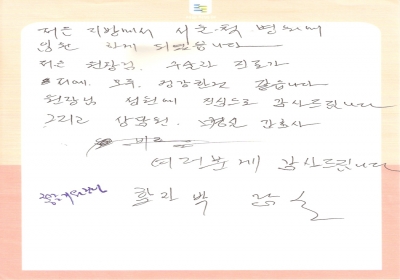 저는 지방에서 서울척 병원에
입원 하게 되었습니다
저는 원장님, 수술과 진료가
모두. 정감한것 같습니다
원장님 성원에 진심으로 감사드립니다
그리고 상담원. 간호사
여러분께 감사드립니다
환자 박